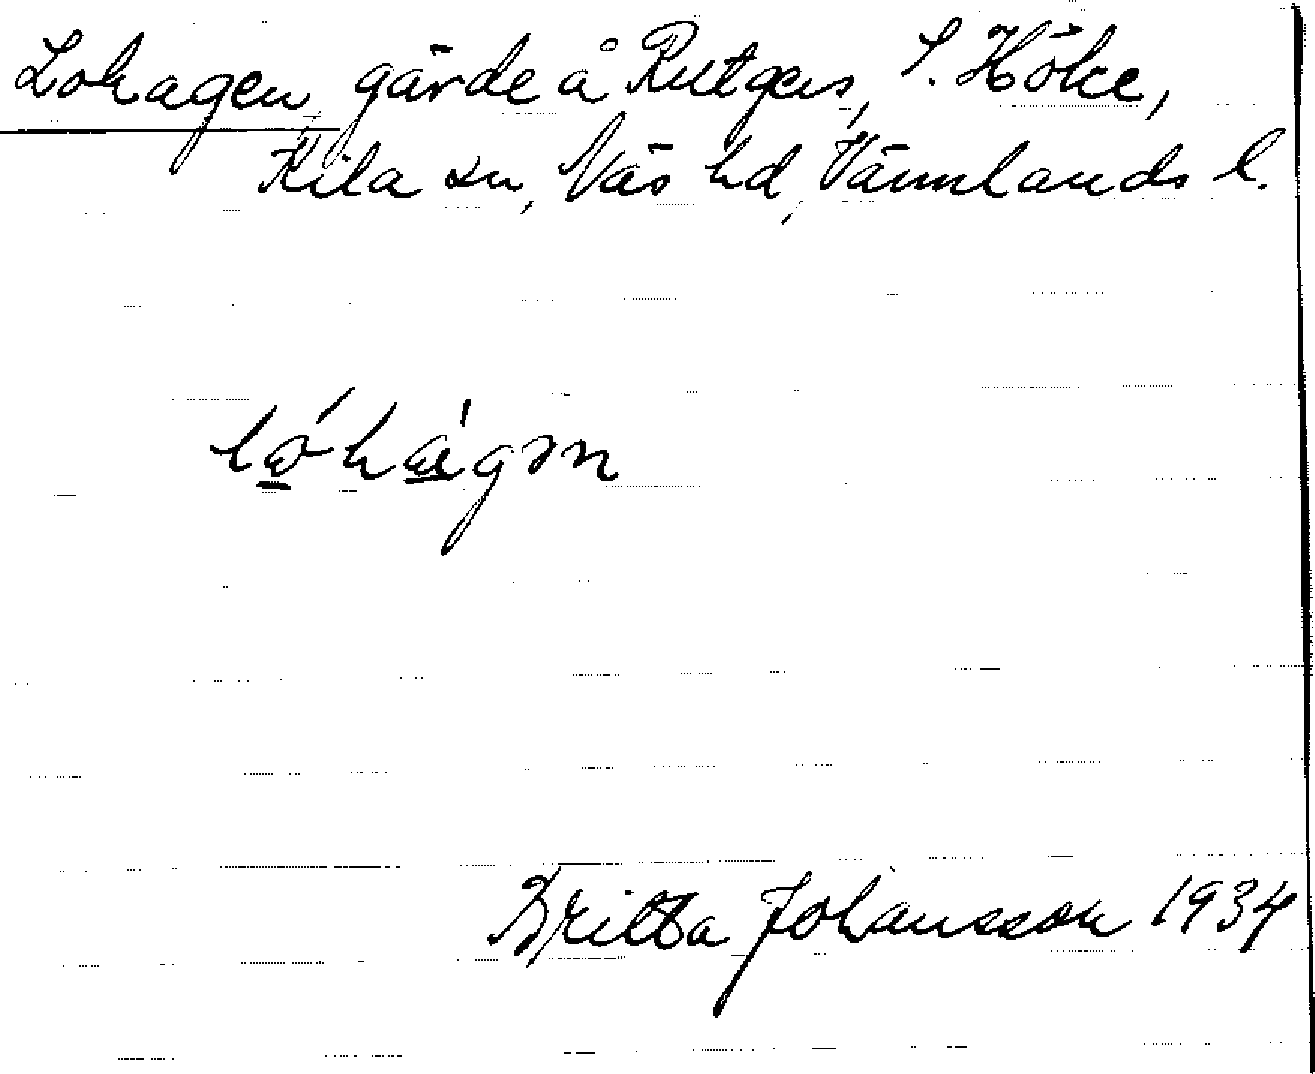 Lohagen, gärde å Rutgers, S. Höke,
Kila sn, Näs hd, Värmlands l.
Britta Johansson 1934